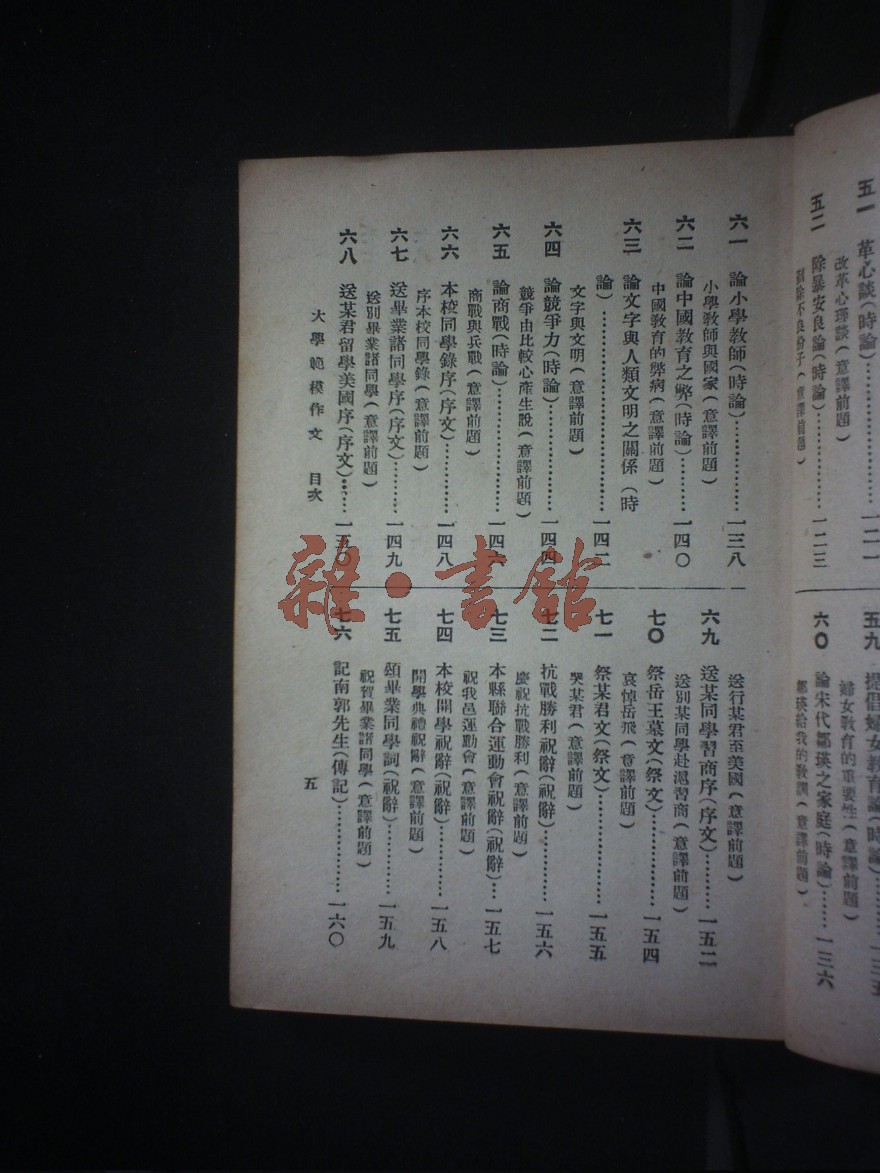 五一 革心談(時論)………一二一
改革心理談(意譯前題)
五二 除暴安良論(時論)………一二三
剷除不良份子(意譯前題)
五九 提倡婦女教育論(時論)………一三五
婦女教育的重要性(意譯前題)
六〇 論宋代鄒瑛之家庭(時論)……一三六
鄒瑛給我的教訓(意譯前題)
六一 論小學教師(時論)………一三八
小學教師與國家(意譯前題)
六二 論中國教育之弊(時論)………一四〇
中國教育的弊病(意譯前題)
六三 論文字與人類文明之關係(時
論)………一四二
文字與文明(意譯前題)
六四 論競爭力(時論)………一四四
競爭由比較心產生說(意譯前題)
六五 論商戰(時論)………一四六
商戰與兵戰(意譯前題)
六六 本校同學錄序(序文)………一四八
序本校同學錄(意譯前題)
六七 送畢業諸同學序(序文)………一四九
送別畢業諸同學(意譯前題)
六八 送某君留學美國序(序文)……一五〇
送行某君至美國(意譯前題)
六九 送某同學習商序(序文)………一五二
送別某同學赴滬習商(意譯前題)
七〇 祭岳王墓文(祭文)………一五四
哀悼岳飛(意譯前題)
七一 祭某君文(祭文)………一五五
哭某君(意譯前題)
七二 抗戰勝利祝辭(祝辭)………一五六
慶祝抗戰勝利(意譯前題)
七三 本縣聯合運動會祝辭(祝辭)…一五七
祝我邑運動會(意譯前題)
七四 本校開學祝辭(祝辭)………一五八
開學典禮祝辭(意譯前題)
七五 頌畢業同學詞(祝辭)………一五九
祝賀畢業諸同學(意譯前題)
七六 記南郭先生(傳記)………一六〇
大學範模作文 目次
五
雜·書館